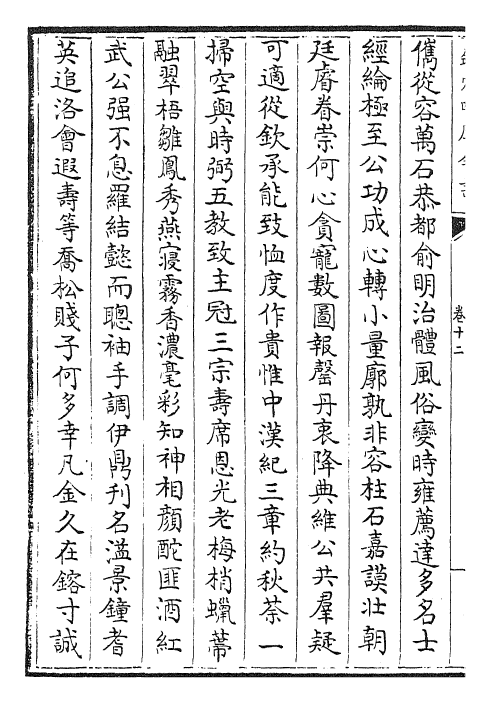 卷十二
儁從容萬石恭都俞明治體風俗變時雍薦達多名士
經綸極至公功成心轉小量廓孰非容柱石嘉謨壯朝
廷睿眷崇何心貪寵數圖報罄丹衷降典維公共羣疑
可適從欽承能致恤度作貴惟中漢紀三章約秋荼一
掃空與時弼五教致主冠三宗壽席恩光老梅梢蠟蔕
融翠梧雛鳳秀燕寢霧香濃毫彩知神相顏酡匪酒紅
武公强不息羅結懿而聰袖手調伊鼎刋名溢景鐘耆
英追洛會遐壽等喬松賤子何多幸凡金久在鎔寸誠